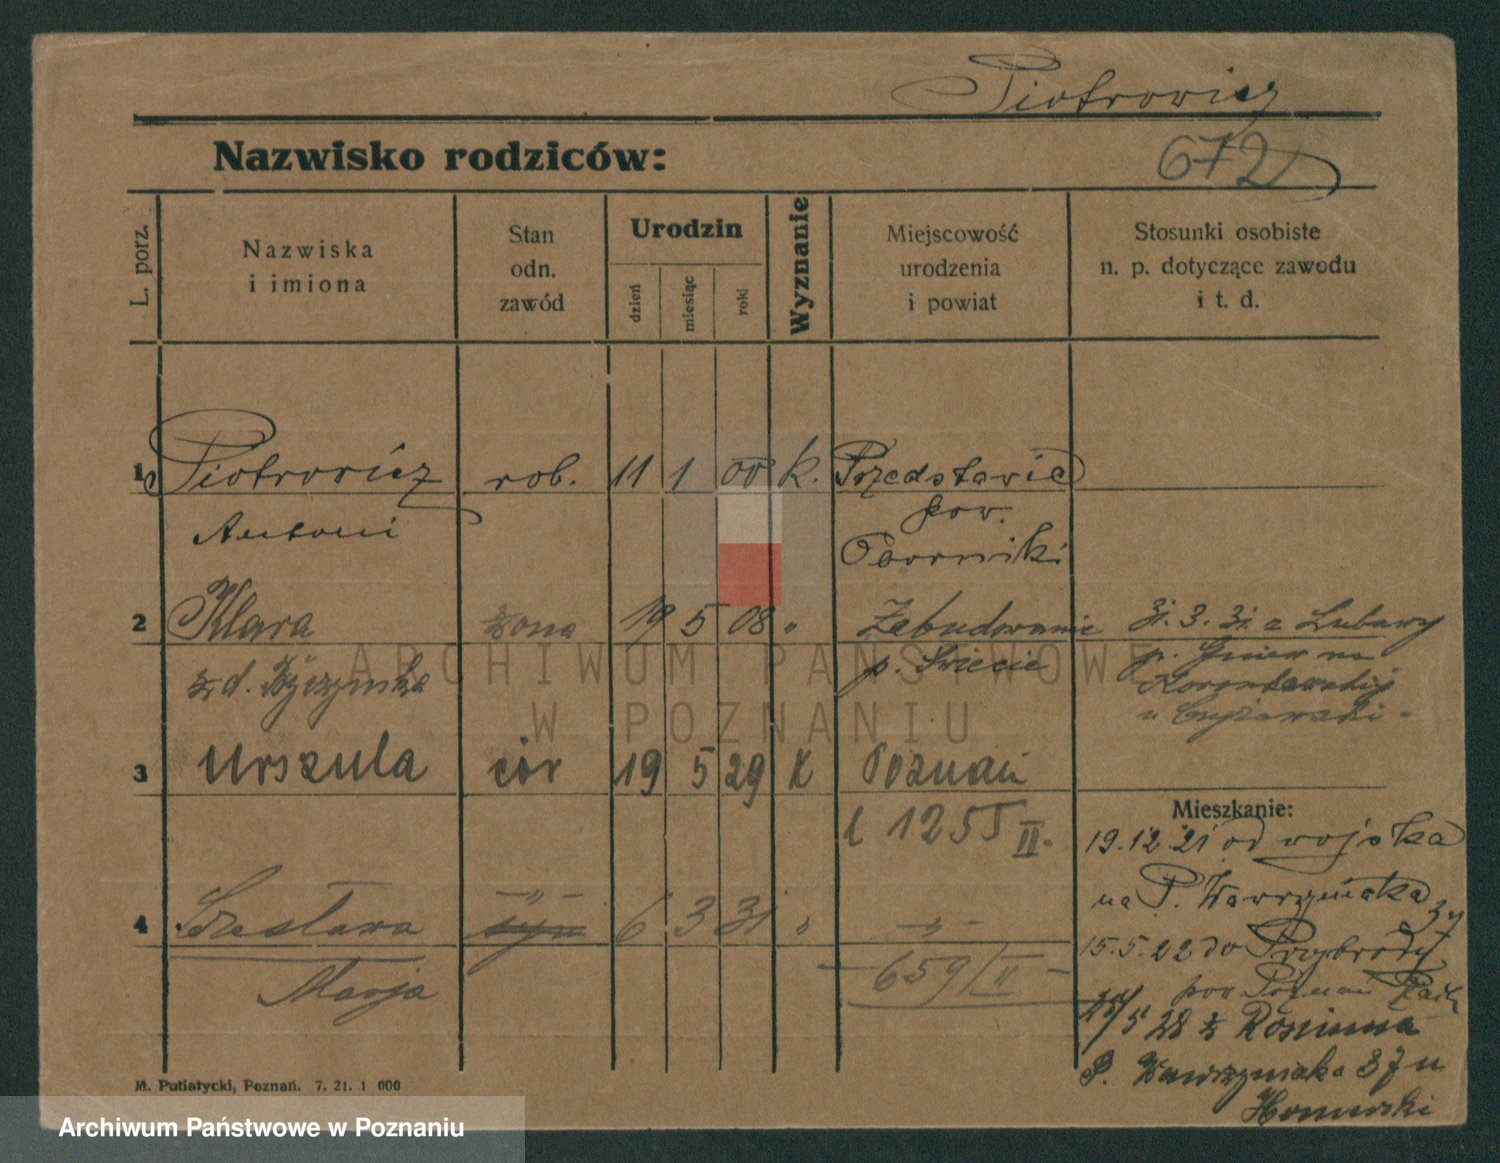 Piotrowicz
672
Nazwisko rodziców:
L. porz.
Nazwiska
i imiona
Stan
odn.
zawód
Urodzin
dzień
miesiąc
rok
Wyznanie
Miejscowość
urodzenia
i powiat
Stosunki osobiste
n. p. dotyczące zawodu
i t. d.
1 Piotrowicz rob. 11 1 00 k. Przedstawie
Antoni pow.
Oborniki
2 Klara żona 19 5 08 " Zabudowanie 31. 3. 31 z Lubawy
z d. p. Świecie
3 Urszula cór 19 5 29 K Poznań
1255 II.
Mieszkanie:
19.12.21 od wojska
na P. Wawrzyniaka 37
4 Czesława -"- 6 3 31 " -"-
15.5.22 do Przybrody
Marja
659/II
pow Poznań
25/5 28 z
P. Wawrzyniaka 37 u
M. Putiatycki, Poznań. 7. 21. 1 000
ARCHIWUM PAŃSTWOWE
W POZNANIU
Archiwum Państwowe w Poznaniu